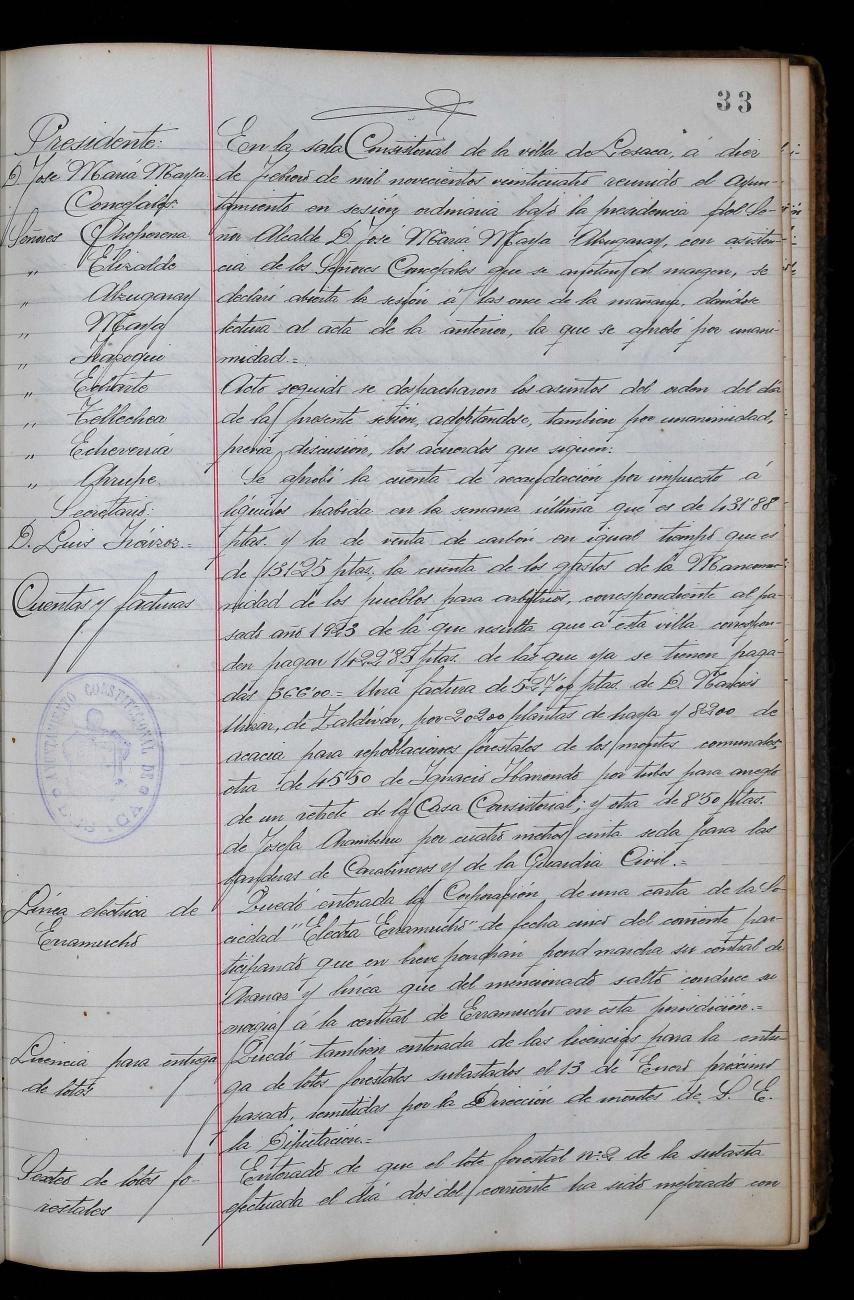 33
Presidente:
D. José María Maya
Concejales:
Señores Choperena
„ Elizalde
„ Alzugaray
„ Maya
„ Irazoqui
„ Echarte
„ Tellechea
„ Echeverría
„ Arrupe.
Secretario:
D. Luis Iráizoz.=
Cuentas y facturas
AYUNTAMIENTO CONSTITUCIONAL DE
Línea eléctrica de
Erramucho
Licencia para entrega
de lotes
Sorteo de lotes fo-
restales
En la sala Consistorial de la villa de Lesaca, á diez
de Febrero de mil novecientos veinticuatro reunido el Ayun-
tamiento en sesión ordinaria bajo la presidencia del Se-
ñor Alcalde D. José María Maya Alzugaray, con asisten-
cia de los Señores Concejales que se anotan al margen, se
declaró abierta la sesión á las once de la mañana, dándose
lectura al acta de la anterior, la que se aprobó por unani-
midad.=
Acto seguido se despacharon los asuntos del orden del día
de la presente sesión, adoptandose, tambien por unanimidad,
previa discusión, los acuerdos que siguen:
Se aprobó la cuenta de recaudación por impuesto á
líquidos habida en la semana última que es de 431'88
ptas. y la de venta de carbón en igual tiempo que es
de 131'25 ptas, la cuenta de los gastos de la Mancomu-
nidad de los pueblos para arbitrios, correspondiente al pa-
sado año 1923 de la que resulta que á esta villa correspon-
den pagar 1422'85 ptas. de las que ya se tienen paga-
das 366'00= Una factura de 527'00 ptas. de D. Narcis
de Zaldivar, por 20200 plantas de haya y 8200 de
acacia para repoblaciones forestales de los montes comunales
otra de 45'50 de Ignacio por tubos para arreglo
de un retrete de la Casa Consistorial; y otra de 8'50 ptas.
de Josefa Aramburu por cuatro metros cinta seda para las
banderas de Carabineros y de la Guardia Civil.=
Quedó enterada la Corporación de una carta de la So-
ciedad "Electra Erramucho" de fecha cinco del corriente par-
ticipando que en breve pondrán pond marcha su central de
Aranaz y línea que del mencionado salto conduce su
energía á la central de Erramucho en esta jurisdición.=
Quedó tambien enterada de las licencias para la entre-
ga de lotes forestales subastados el 13 de Enero próximo
pasado, remitidas por la Dirección de montes de S. E.
la Diputación.=
Enterado de que el lote forestal nº 2 de la subasta
efectuada el día dos del corriente ha sido mejorado con